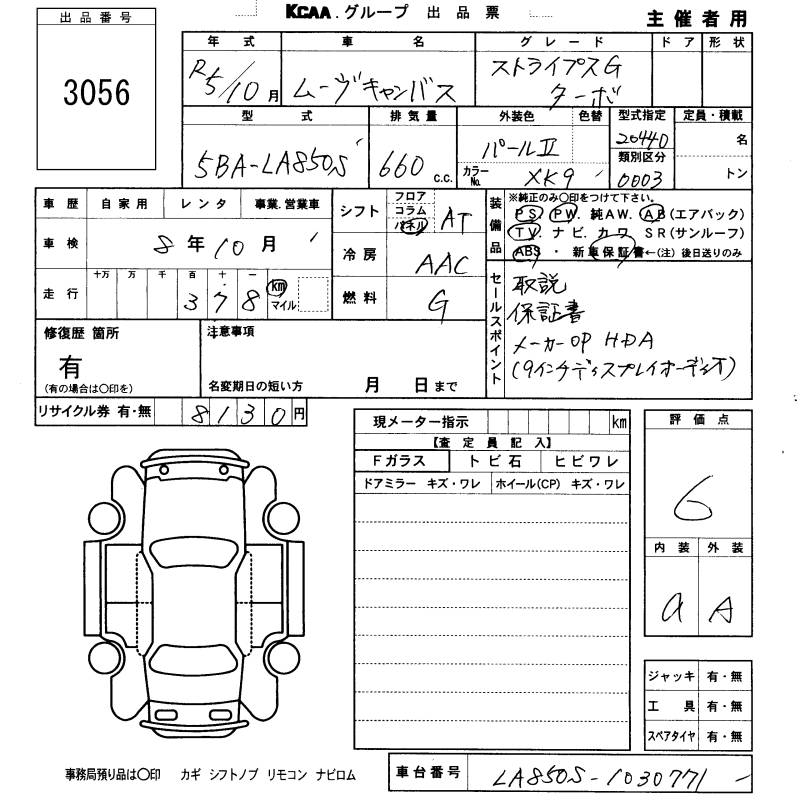 KCAA グループ 出品票
主催者用
出品番号
3056
年式 車名 グレード ドア 形状
R5/10月 ムーヴキャンバス ストライプスG
ターボ
型式 排気量 外装色 色替 型式指定 定員・積載
5BA-LA850S 660 c.c. パールⅡ 20440 名
類別区分
カラーNo. XK9 0003 トン
車歴 自家用 レンタ 事業.営業車
シフト フロア コラム パネル AT
車検 8年10月
冷房 AAC
走行 十万 万 千 百 十 一
378 km マイル
燃料 G
装備品 ※純正のみ〇印をつけて下さい。
PS PW. 純AW. AB(エアバック)
TV. ナビ. カワ SR(サンルーフ)
ABS ・ 新車保証書←(注) 後日送りのみ
セールスポイント
取説
保証書
メーカーOP HDA
(9インチディスプレイオーディオ)
修復歴 箇所 注意事項
有
(有の場合は〇印を) 名変期日の短い方 月 日まで
リサイクル券 有・無 8130円
現メーター指示 km
【査定員記入】
Fガラス トビ石 ヒビワレ
ドアミラー キズ・ワレ ホイール(CP) キズ・ワレ
評価点
6
内装 外装
a A
ジャッキ 有・無
工具 有・無
スペアタイヤ 有・無
事務局預り品は〇印 カギ シフトノブ リモコン ナビロム
車台番号 LA850S-1030771